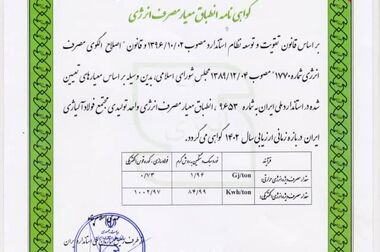 گواهی نامه انطباق معیار مصرف انرژی
بر اساس قانون تقویت و توسعه نظام استاندارد مصوب ۱۳۹۶/۱۰/۰۲ و قانون " اصلاح الگوی مصرف
انرژی شماره ۱۷۷۰ " مصوب ۱۳۸۹/۱۲/۰۴ مجلس شورای اسلامی، بدین وسیله بر اساس معیارهای تعیین
شده در استاندارد ملی ایران به شماره ۹۶۵۳ ، انطباق معیار مصرف انرژی واحد تولیدی مجتمع فولاد آلیاژی
ایران در بازه زمانی ارزیابی سال ۱۴۰۲ گواهی می گردد.
فرآیند نورد سنگین به روش گرم فولادسازی، کوره قوس الکتریکی
مقدار مصرف ویژه انرژی حرارتی Gj/ton ۱/۹۴ ۰/۷۳
مقدار مصرف ویژه انرژی الکتریکی Kwh/ton ۸۴/۹۹ ۱۰۰۲/۹۷